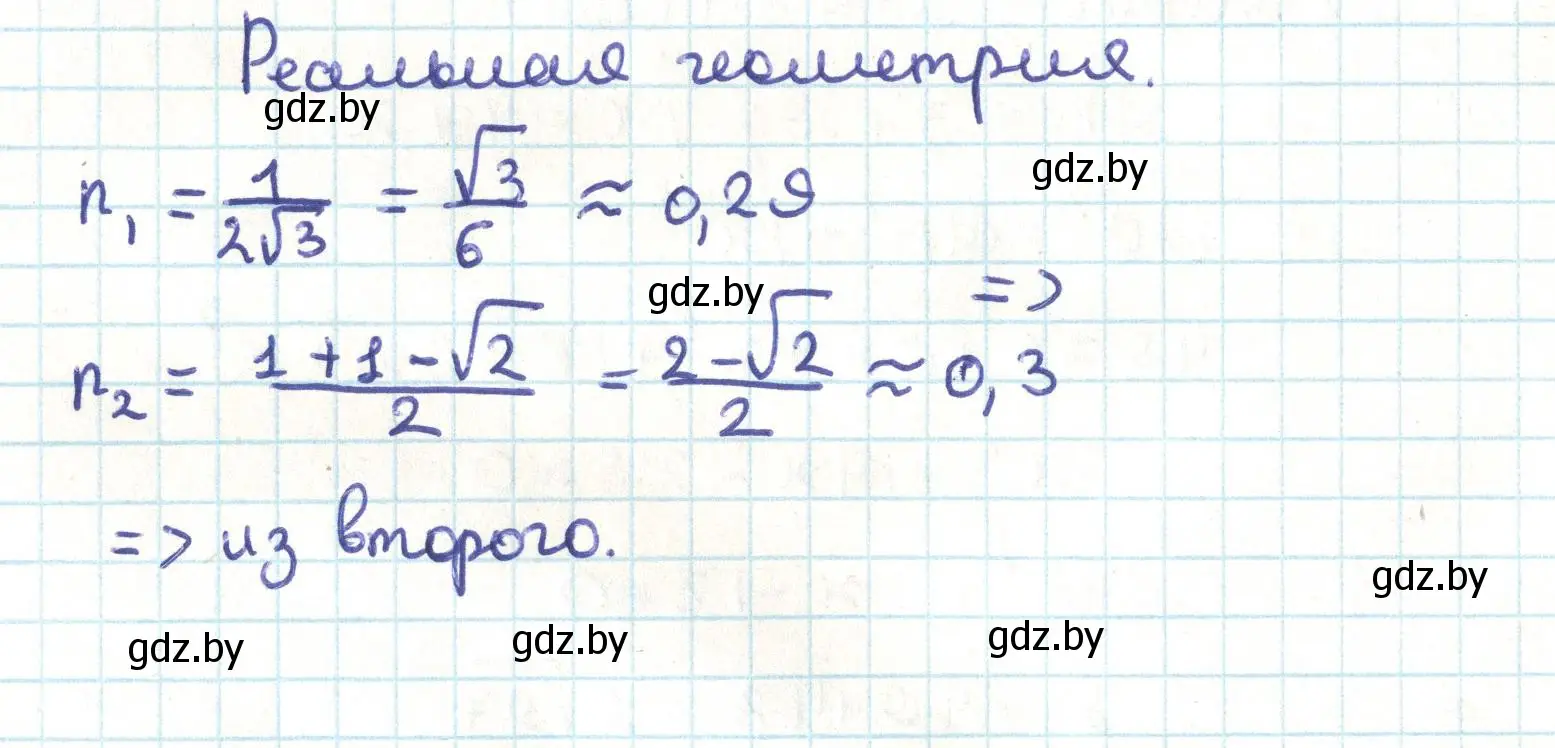 Реальная геометрия.
gdz.by
gdz.by
r₁ = 1/(2√3) = √3/6 ≈ 0,29
gdz.by
=>
r₂ = (1+1-√2)/2 = (2-√2)/2 ≈ 0,3
=> из второго.
gdz.by
gdz.by
gdz.by
gdz.by